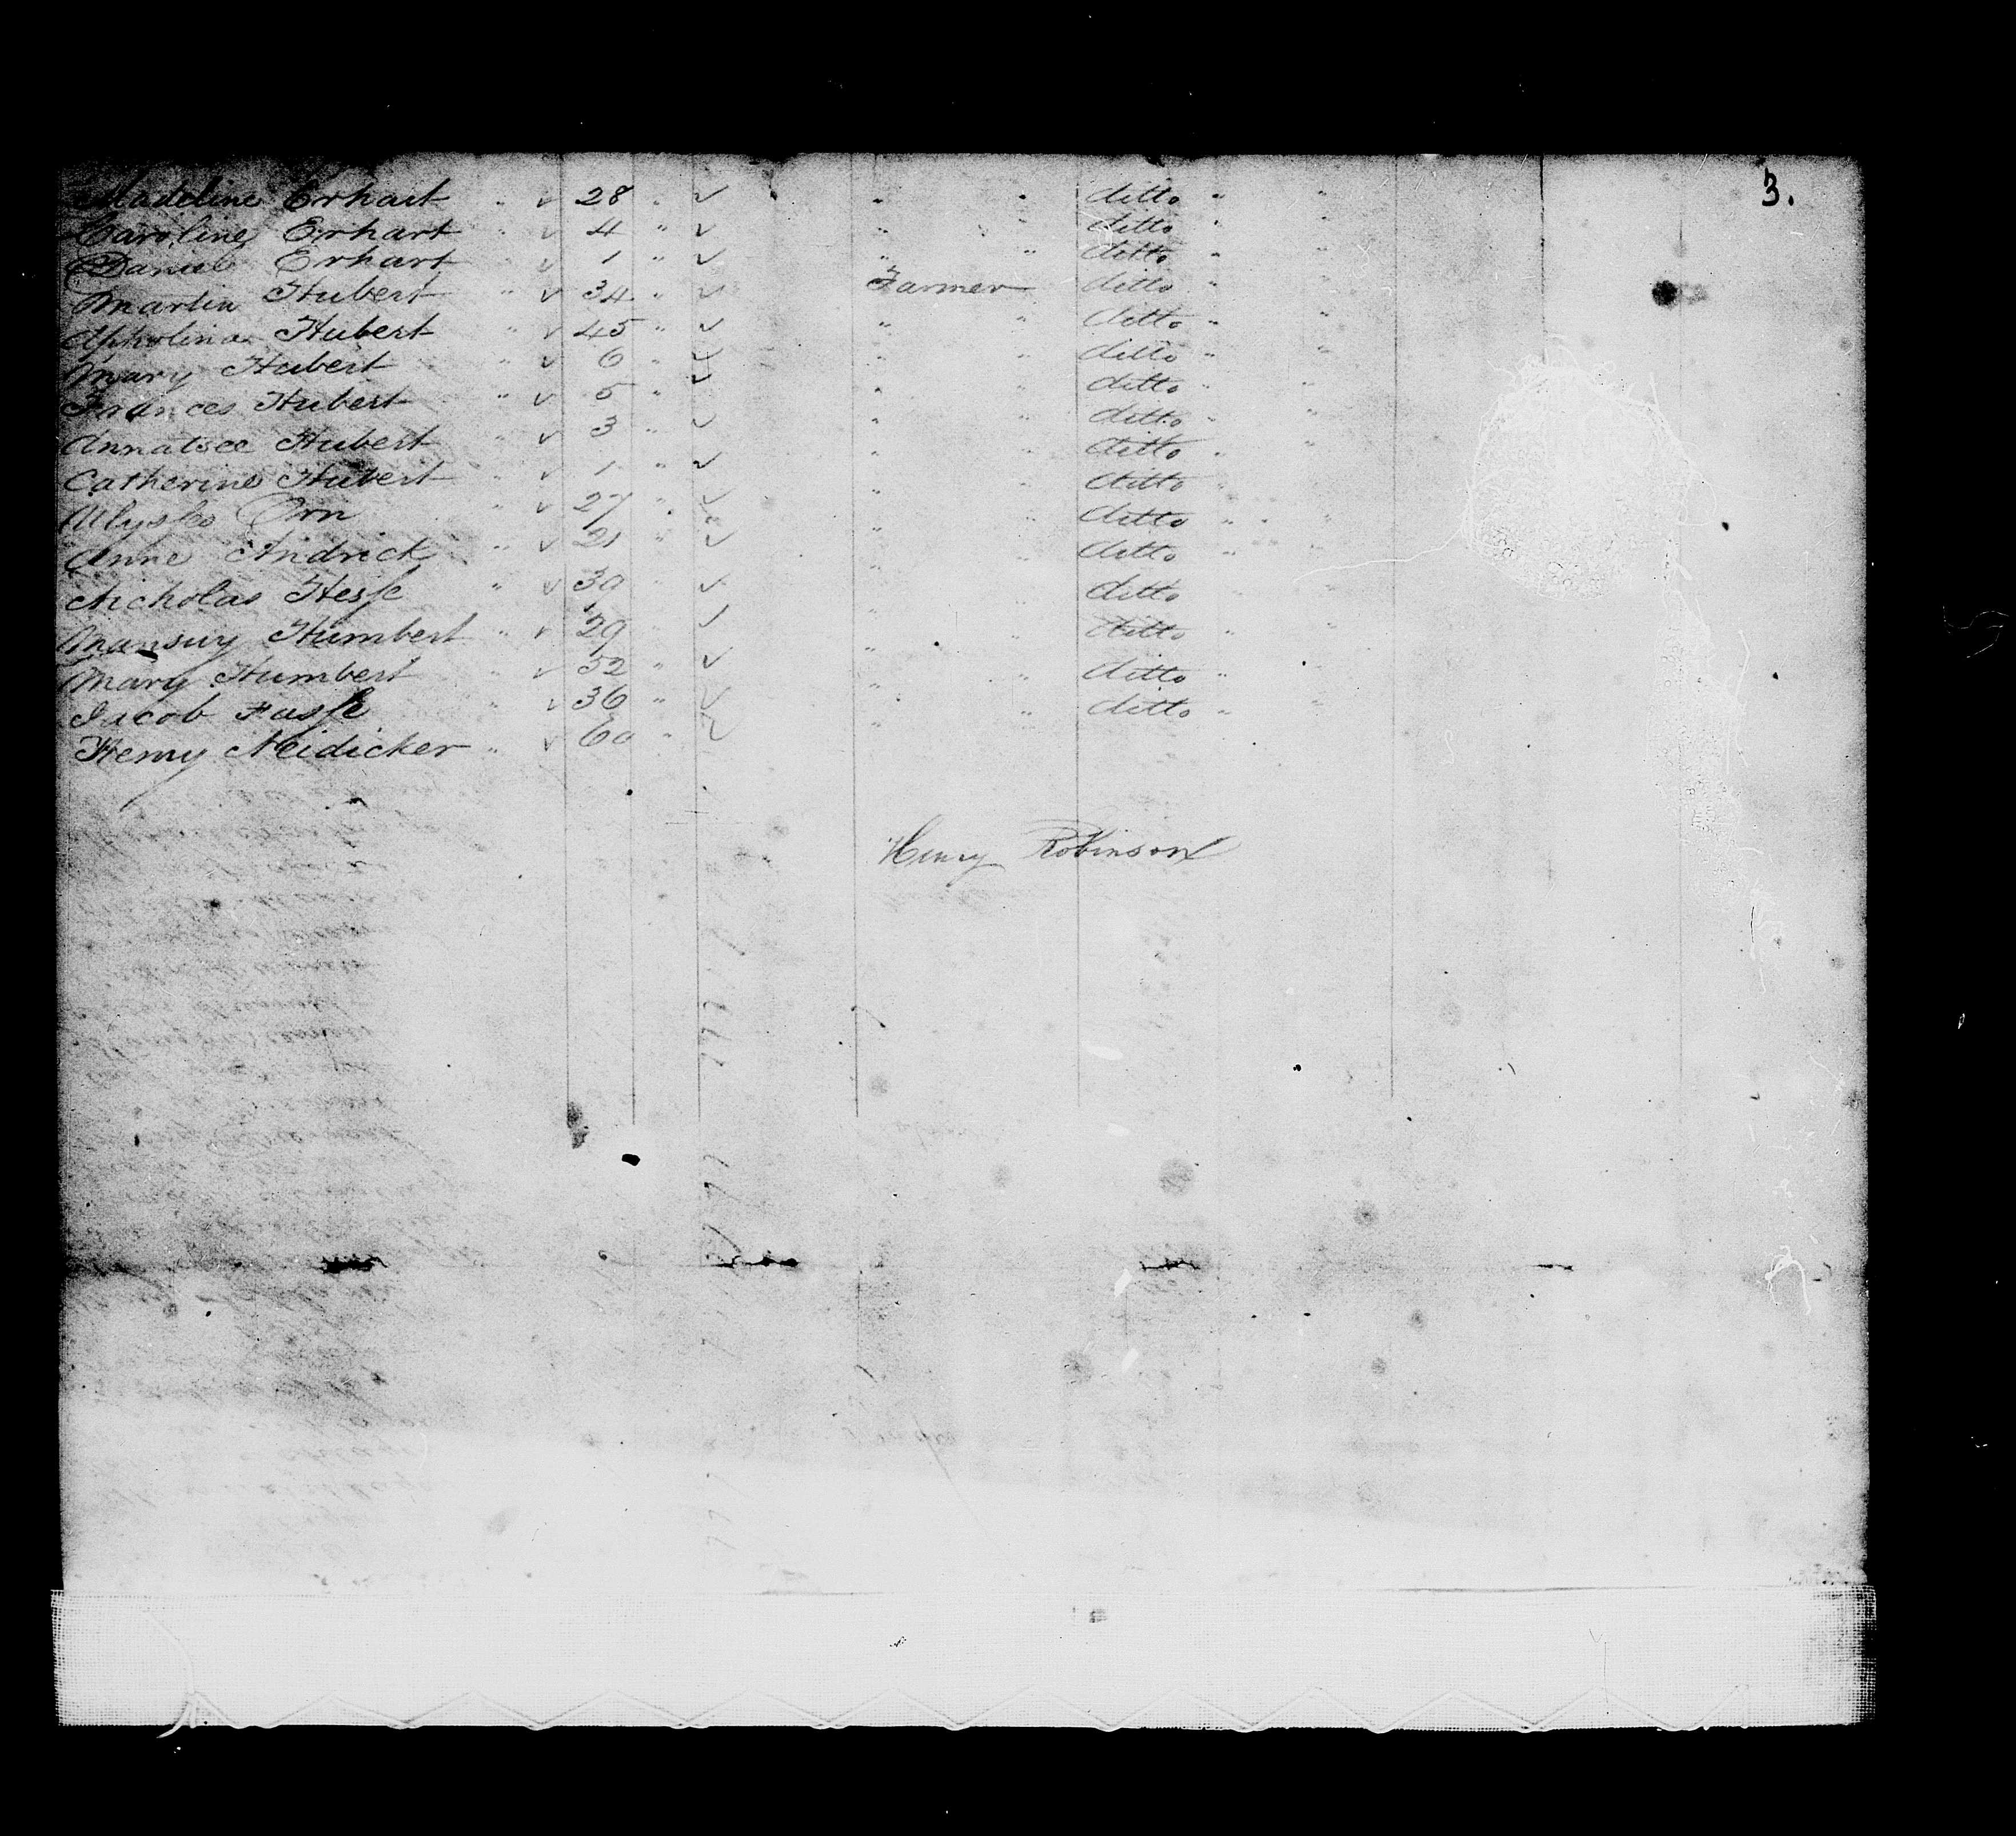 3.
Madeline Erhart " ✓ 28 " ✓ " " ditto " "
Caroline Erhart " ✓ 4 " ✓ " " ditto " "
Daniel Erhart " ✓ 1 " ✓ " " ditto " "
Martin Hubert " ✓ 34 " ✓ Farmer ditto " "
Apholina Hubert " ✓ 45 " ✓ " " ditto " "
Mary Hubert " ✓ 6 " ✓ " " ditto " "
Frances Hubert " ✓ 5 " ✓ " " ditto " "
Annatsee Hubert " ✓ 3 " ✓ " " ditto " "
Catherine Hubert " ✓ 1 " ✓ " " ditto " "
Ulysses Orn " ✓ 27 " ✓ " " ditto " "
Anne Andrick " ✓ 21 " ✓ " " ditto " "
Nicholas Hesse " ✓ 30 " ✓ " " ditto " "
Mansuy Humbert " ✓ 29 " ✓ " " ditto " "
Mary Humbert " ✓ 52 " ✓ " " ditto " "
Jacob Fasse " ✓ 36 " ✓ " " ditto " "
Henry Neidicker " ✓ 60 " ✓ " " ditto " "
Henry Robinson